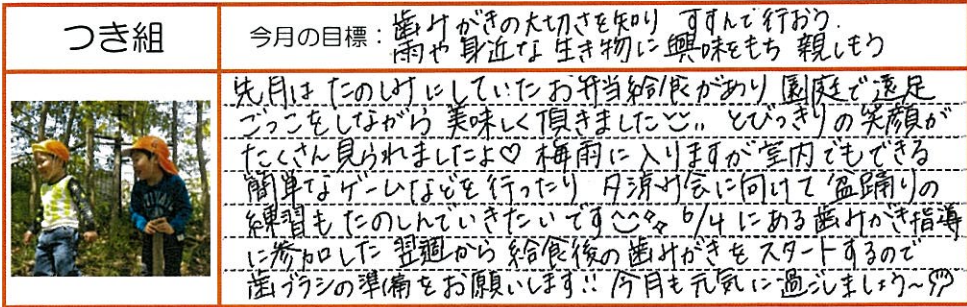 つき組
今月の目標：歯みがきの大切さを知り すすんで行おう.
雨や身近な生き物に興味をもち 親しもう
先月は たのしみにしていたお弁当給食があり 園庭で遠足
ごっこをしながら 美味しく頂きました とびっきりの笑顔が
たくさん見られましたよ♡ 梅雨に入りますが室内でもできる
簡単なゲームなどを行ったり 夕涼み会に向けて 盆踊りの
練習もたのしんでいきたいです 6/4にある歯みがき指導
に参加した 翌週から 給食後の歯みがきをスタートするので
歯ブラシの準備をお願いします!! 今月も元気に過ごしましょう〜